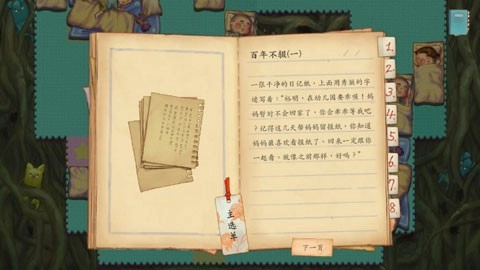 百年不辍(一)
一张干净的日记纸，上面用秀丽的字
迹写着："裕明，在幼儿园要乖哦！妈
妈暂时不会回家了，你会乖乖等我吧
？记得这几天帮妈妈留报纸了，你知道
妈妈最喜欢看报纸了，回来一定跟你
一起看，就像之前那样，好吗？"
主选单
下一页
1.
2.
3.
4.
5.
6.
7.
8